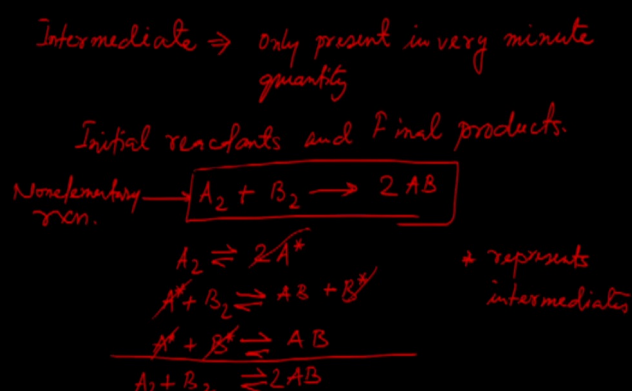 Intermediate ⇒ only present in very minute
quantity
Initial reactants and Final products.
Nonelementary
rxn.
A₂ + B₂ → 2AB
A₂ ⇌ 2A*
A* + B₂ ⇌ AB + B*
* represents
intermediates
A* + B* ⇌ AB
A₂ + B₂ ⇌ 2AB